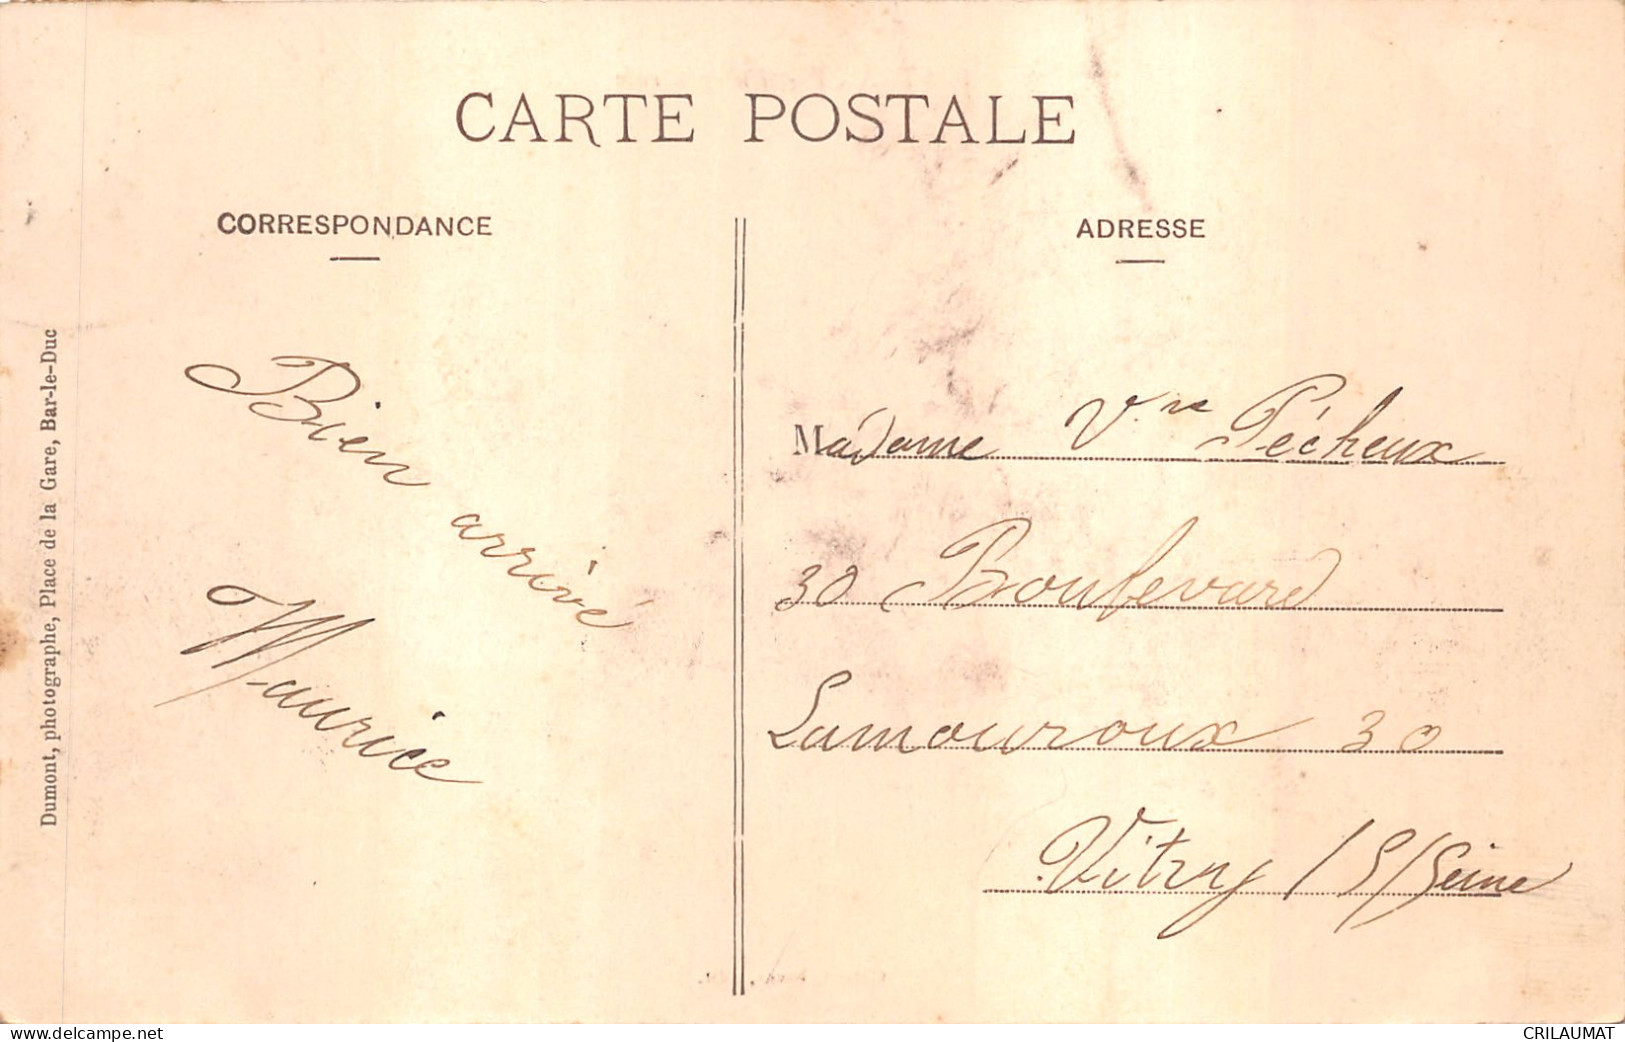 CARTE POSTALE
CORRESPONDANCE
ADRESSE
Dumont, photographe, Place de la Gare, Bar-le-Duc
Bien arrivé
Maurice
Madame Vve Pécheux
30 Boulevard
Lamouroux 30
Vitry / S/Seine
www.delcampe.net
CRILAUMAT